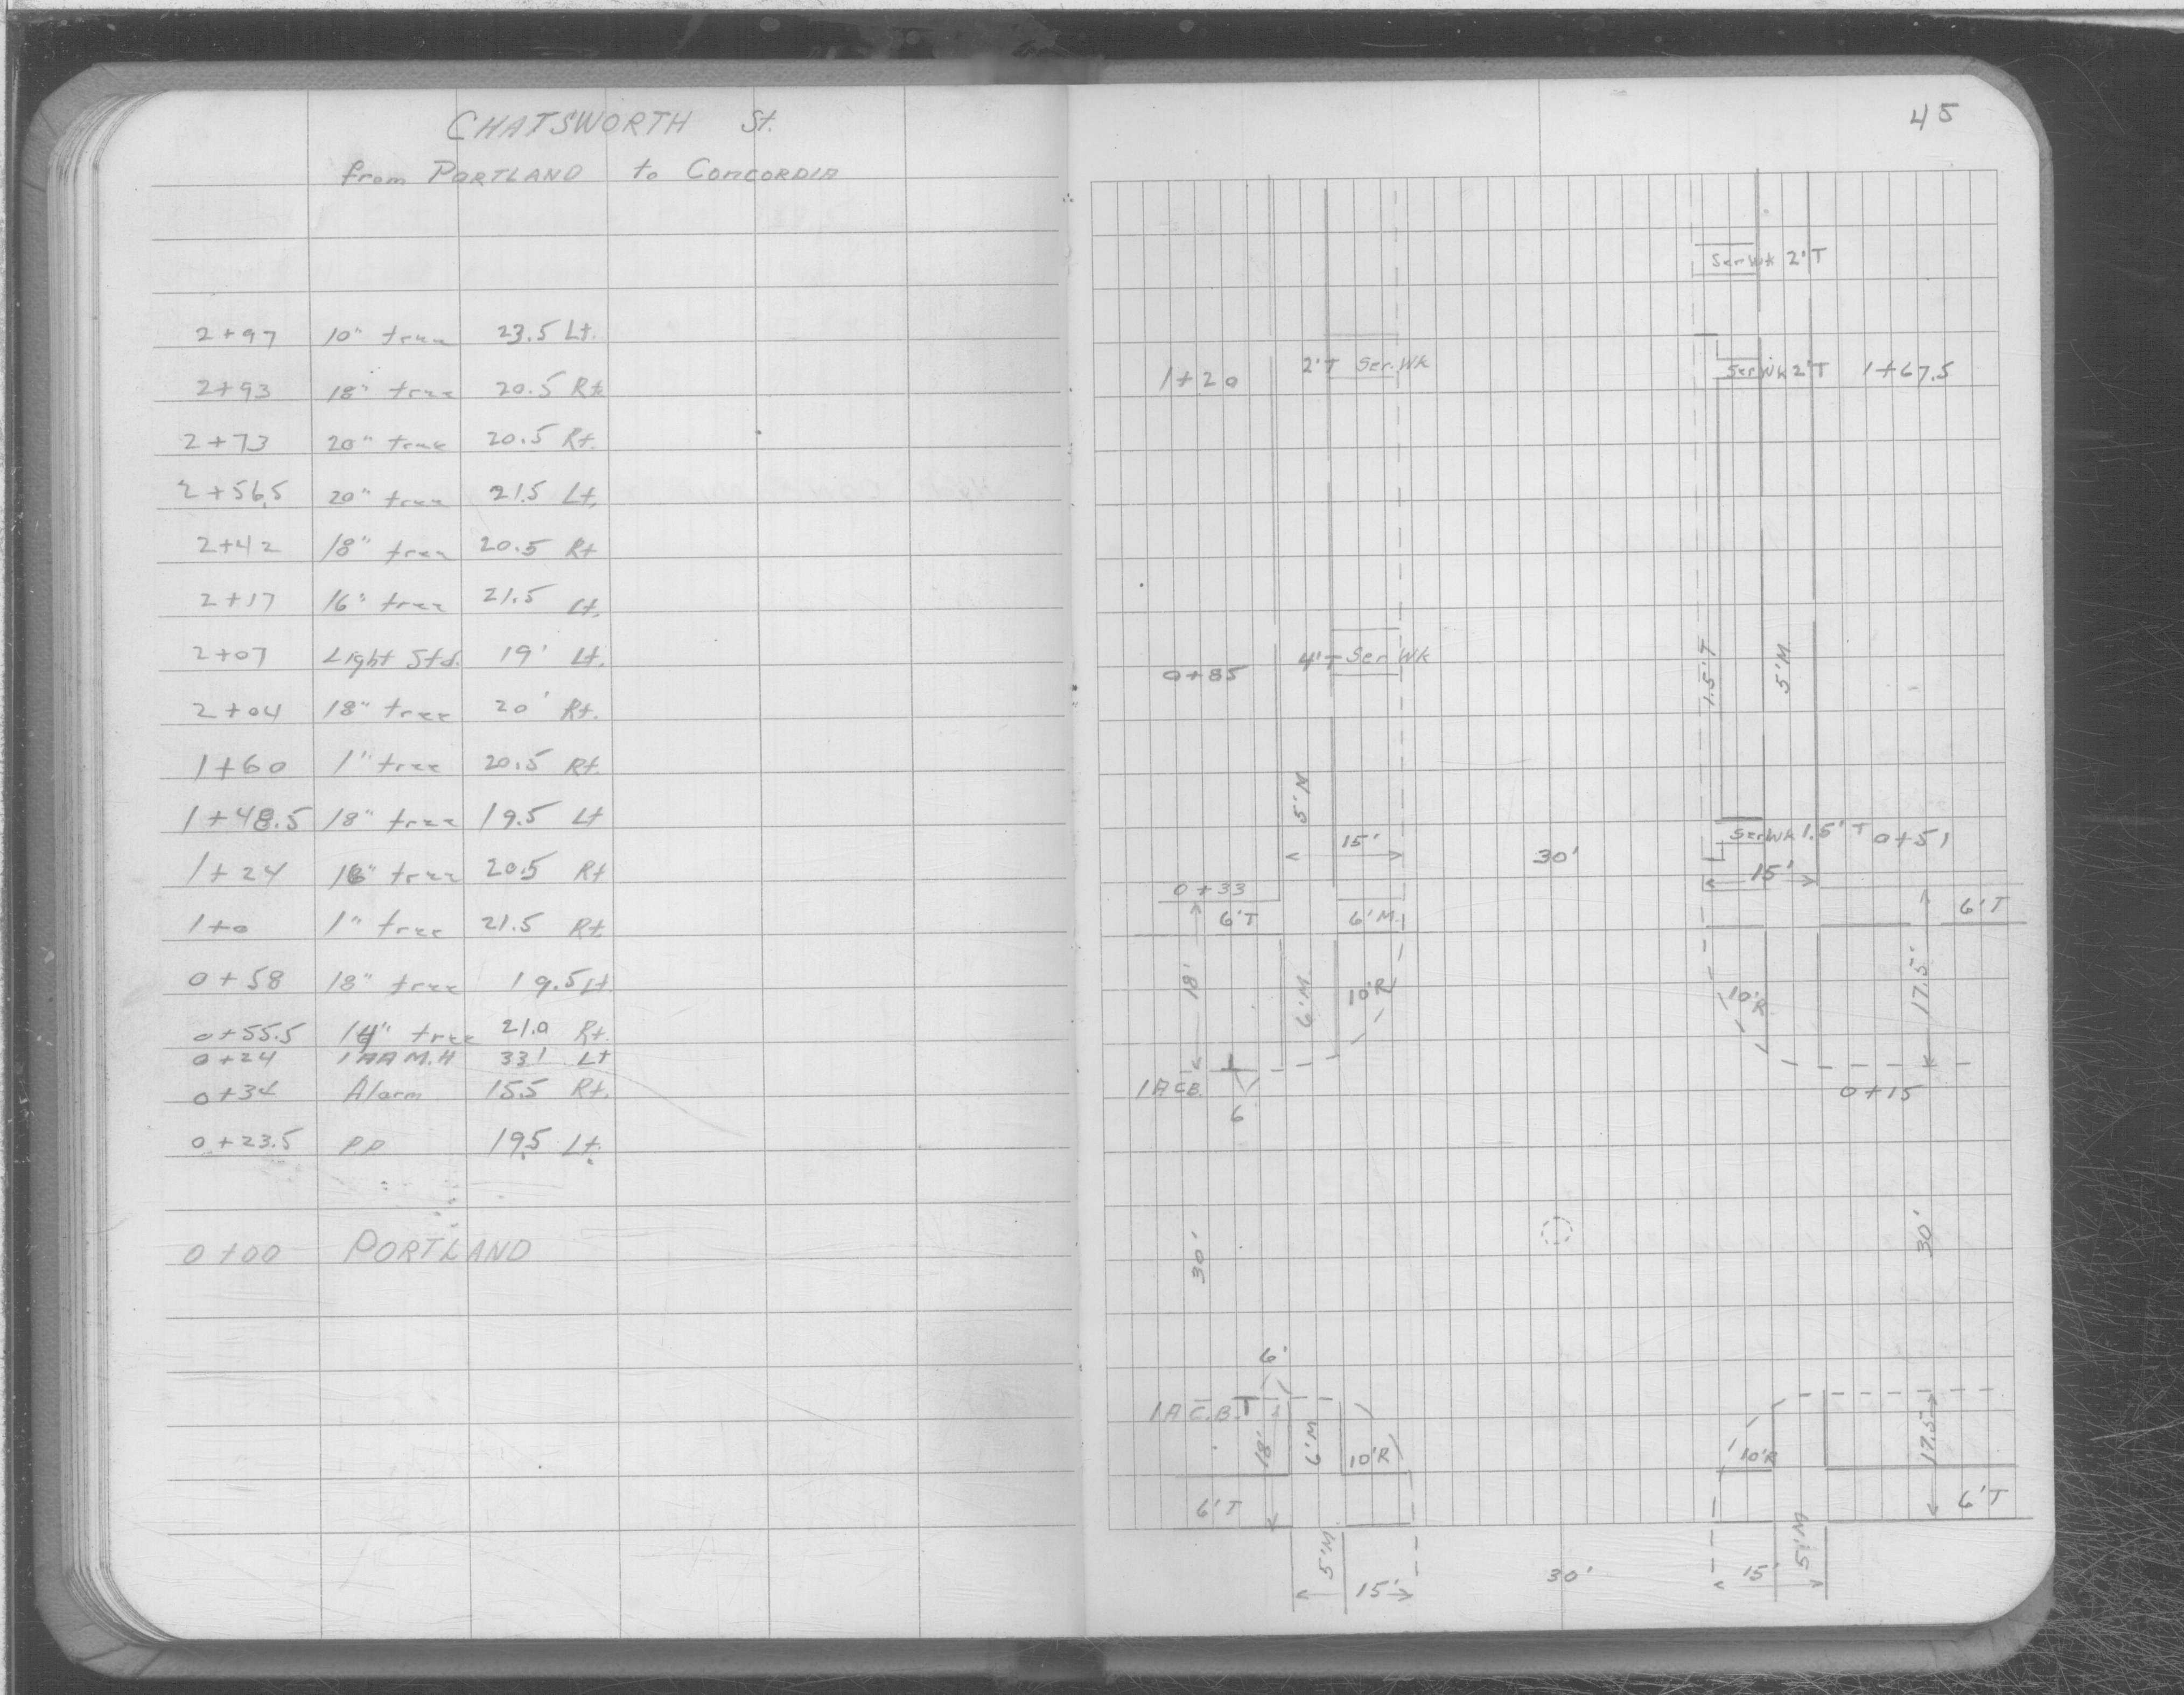 CHATSWORTH St.
from PORTLAND to CONCORDIA
2+97 10" tree 23.5 Lt.
2+93 18" tree 20.5 Rt
2+73 20" tree 20.5 Rt.
2+56.5 20" tree 21.5 Lt.
2+42 18" tree 20.5 Rt
2+17 16" tree 21.5 Lt.
2+07 Light Std. 19' Lt.
2+04 18" tree 20' Rt.
1+60 1" tree 20.5 Rt.
1+48.5 18" tree 19.5 Lt
1+24 16" tree 20.5 Rt
1+0 1" tree 21.5 Rt
0+58 18" tree 19.5 Lt
0+55.5 14" tree 21.0 Rt.
0+24 1AA M.H 33' Lt
0+34 Alarm 15.5 Rt.
0+23.5 PP 19.5 Lt.
0+00 PORTLAND
45
Ser Wk 2'T
1+20 2'T Ser.Wk Ser Wk 2'T 1+67.5
0+85 4'T Ser Wk 1.5'T 5'M
5'M
15' 30' Ser Wk 1.5'T 0+51
15'
0+33
6'T 6'M 6'T
18' 6'M 10'R 10'R 17.5'
1A C.B. 0+15
6
30' 30'
6'
1A C.B.
18' 6'M 10'R 10'R 17.5'
6'T 6'T
5'M 5'M
15' 30' 15'